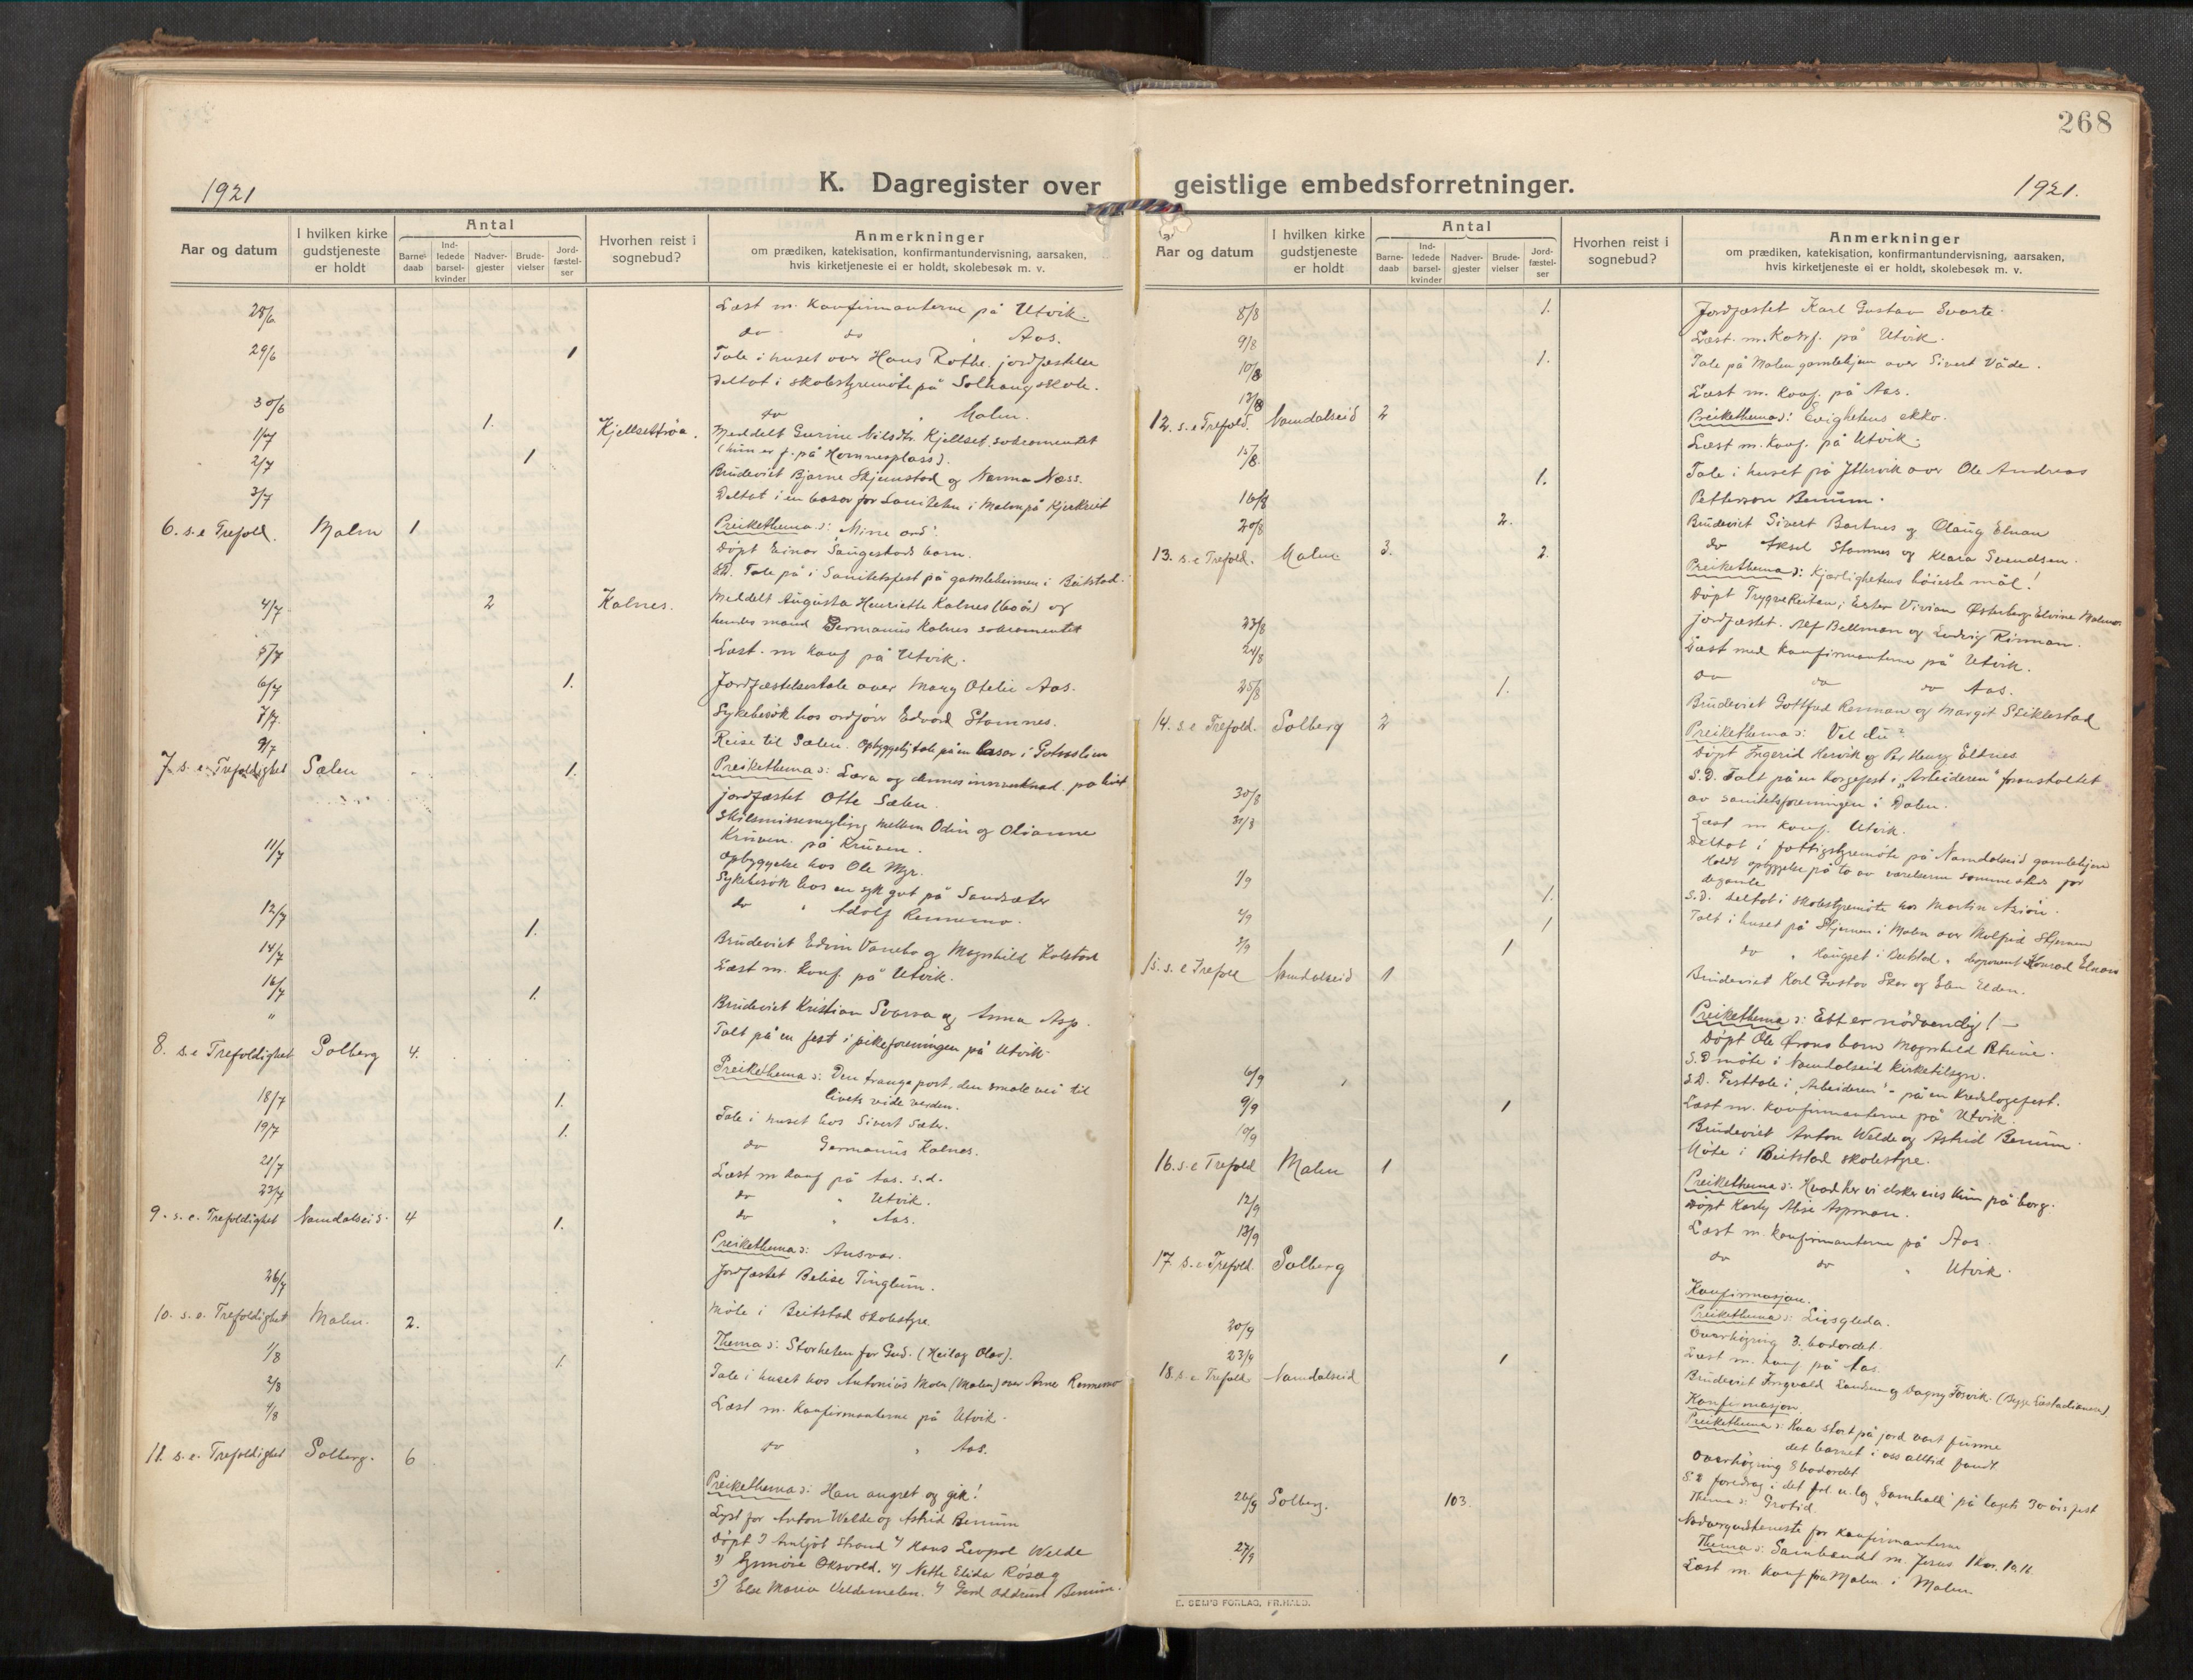 268
1921
K. Dagregister over geistlige embedsforretninger.
1921.
Aar og datum
I hvilken kirke gudstjeneste er holdt
Antal
Barnedaab
Indledede barselkvinder
Nadvergjester
Brudevielser
Jordfæstelser
Hvorhen reist i sognebud?
Anmerkninger
om prædiken, katekisation, konfirmantundervisning, aarsaken,
hvis kirketjeneste ei er holdt, skolebesøk m. v.
28/6 Læst m. konfirmanterne på Utvik.
do do Aas.
29/6 1 Tale i huset over Hans Rothe. jordfæstelse
Deltat i skolestyremöte på Solhaug skole.
30/6 do Malm.
1/7 1. Kjellsettröa. Meddelt Gurine Nilsdtr. Kjellset sakramentet
(hun er f. på Hornnesplass).
2/7 1 Brudeviet Bjarne Skjemstad og Norma Næss.
3/7 Deltat i en basar for Saniteten i Malm på
6. s. e Trefold. Malm 1 Preikethema ɔ: "Mine ord".
Döpt Einar Saugestads barn.
S.D. Tale på i Sanitetsfest på gamleheimen i Beitstad.
4/7 2 Kalnes. Meddelt Augusta Henriette Kalnes (60 år) og
hendes mand Germanius Kalnes sakramentet
5/7 Læst. m konf på Utvik.
6/7 1. Jordfæstelsestale over Mary Otelie Aas.
7/7. Sykebesök hos ordförer Edvard Stamnes.
9/7 Reise til Sælen. Opbyggelig tale på en basar i
7. s. e. Trefoldighet Sælen 1. Preikethema ɔ: Læra og dennes på livet
jordfæstet Otte Sælen.
Skilsmissemegling mellem Odin og Olianne
Kruven. på Kruven.
11/7 Opbyggelse hos Ole Myr.
Sykebesök hos en syk gut på Sandsæter
do " Adolf Rennemo.
12/7 1. Brudeviet Edvin Vanebo og Magnhild Kolstad
14/7 Læst m. konf på Utvik.
16/7 1. Brudeviet Kristian Svarva og Anna Asp.
" Talt på en fest i pikeforeningen på Utvik
8. s. e Trefoldighet Solberg 4. Preikethema ɔ: Den trange port, den smale vei til
livets vide verden.
18/7 1. Tale i huset hos Sivert Sæter.
19/7 1. do Germanius Kalnes.
21/7 Læst m konf på Aas. s.d.
do " Utvik.
23/7 do " Aas.
9. s. e. Trefoldighet Namdalseid. 4 1. Preikethema ɔ: Ansvar.
Jordfæstet Belise Tinglum.
26/7 Möte i Beitstad skolestyre.
10. s. e. Trefoldighet Malm. 2. Thema ɔ: Storheten for Gud. (Heilag Olav).
1/8 1. Tale i huset hos Antonius Moen (Malm) over Arne Rennemo
2/8 Læst m. konfirmanterne på Utvik.
4/8 do " Aas.
11. s. e. Trefoldighet Solberg. 6 Preikethema ɔ: Han angret og gik!
Lyst for Anton Welde og Astrid Benum
Döpt 1) Strand 2) Hans Leopol Welde
3) Oksvold. 4) Nette Elida Rösæg
5) Else Maria Veldemelen. 6) Gerd Oddrun Benum.
Aar og datum
I hvilken kirke gudstjeneste er holdt
Antal
Barnedaab
Indledede barselkvinder
Nadvergjester
Brudevielser
Jordfæstelser
Hvorhen reist i sognebud?
Anmerkninger
om prædiken, katekisation, konfirmantundervisning, aarsaken,
hvis kirketjeneste ei er holdt, skolebesøk m. v.
8/8 1. Jordfæstet Karl Gustav Svarte.
9/8 Læst. m. Konf. på Utvik.
10/8 1. Tale på Malm gamlehjem over Sivert Våde.
13/8 Læst m. konf. på Aas.
12. s. e Trefold. Namdalseid 2 Preikethema ɔ: Evighetens ekko.
15/8. Læst m. Konf. på Utvik.
1. Tale i huset på Yttervik over Ole Andreas
16/8 Petterson Benum.
20/8 2. Brudeviet Sivert Bartnes og Olaug Elnan
do Aksel Stamnes og Klara Svendsen.
13. s. e Trefold. Malm 3. 2. Preikethema ɔ: Kjærlighetens höieste mål!
Döpt Trygve Reitan, Ester Vivian Østerberg, Elvine Malmo.
jordfæstet. Alf Bellman og Ludvig Rinnan.
23/8 Læst med konfirmanterne på Utvik.
24/8 do do do Aas.
25/8 1. Brudeviet Gottfred Renman og Margit Stiklestad
14. s. e Trefold. Solberg 2 Preikethema ɔ: Vil du?
Döpt Ingerid Hervik og Per Henry Eltnes
S.D. Talt på en Korgefest i "Arbeideren" foranstaltet
av sanitetsforeningen i Dalen.
30/8 Læst m konf. Utvik.
31/8 Deltat i fattigstyremöte på Namdalseid gamlehjem
Holdt opbyggelse på to av værelserne sammesteds for
de gamle
1/9 S.D. Deltat i skolestyremöte hos Martin
1. Talt i huset på Skjernes i Malm over
2/9 1 do " Haugset i Beitstad " Konrad Elnan
3/9 1 Brudeviet Karl Gustav Skar og Elen Elden.
15. s. e Trefold Namdalseid 1 Preikethema ɔ: Ett er nödvendig! —
Döpt Ole barn Magnhild Petrine.
S.D möte i Namdalseid kirketilsyn.
S.D. Festtale i "Arbeideren" - på en Kredslogefest.
6/9 Læst m. konfirmanterne på Utvik.
9/9 1 Brudeviet Anton Welde og Astrid Benum.
10/9 Möte i Beitstad skolestyre.
16. s. e Trefold Malm 1 Preikethema ɔ: Hvad her vi elsker eies kun på borg.
Döpt Karly Alise Aspman.
12/9 Læst m. konfirmanterne på Aas.
13/9 do do " Utvik.
17. s. e Trefold. Solberg Konfirmasjon.
Preikethema ɔ: Livsgleda.
Overhöyring 3. bodordet.
20/9 Læst m. konf på Aas.
23/9 1 Brudeviet Ingvald Landsem og Dagny Fosvik. (Begge Læstadianere)
18. s. e Trefold. Namdalseid Konfirmasjon.
Preikethema ɔ: Kva stort på jord vart funne
det barnet i oss alltid fandt.
Overhöyring 8 bodordet
S.D foredrag i det fril. u.lag "Samhald" på lagets 30 års fest
Thema ɔ: Grotid.
26/9 Solberg. 103. Nadvergudtjeneste for konfirmanterne
Thema ɔ: Sambandet m. Jesus 1 Kor. 10.16
27/9 Læst m. konf fra Malm i Malm.
E. SEM'S FORLAG, FR.HALD.